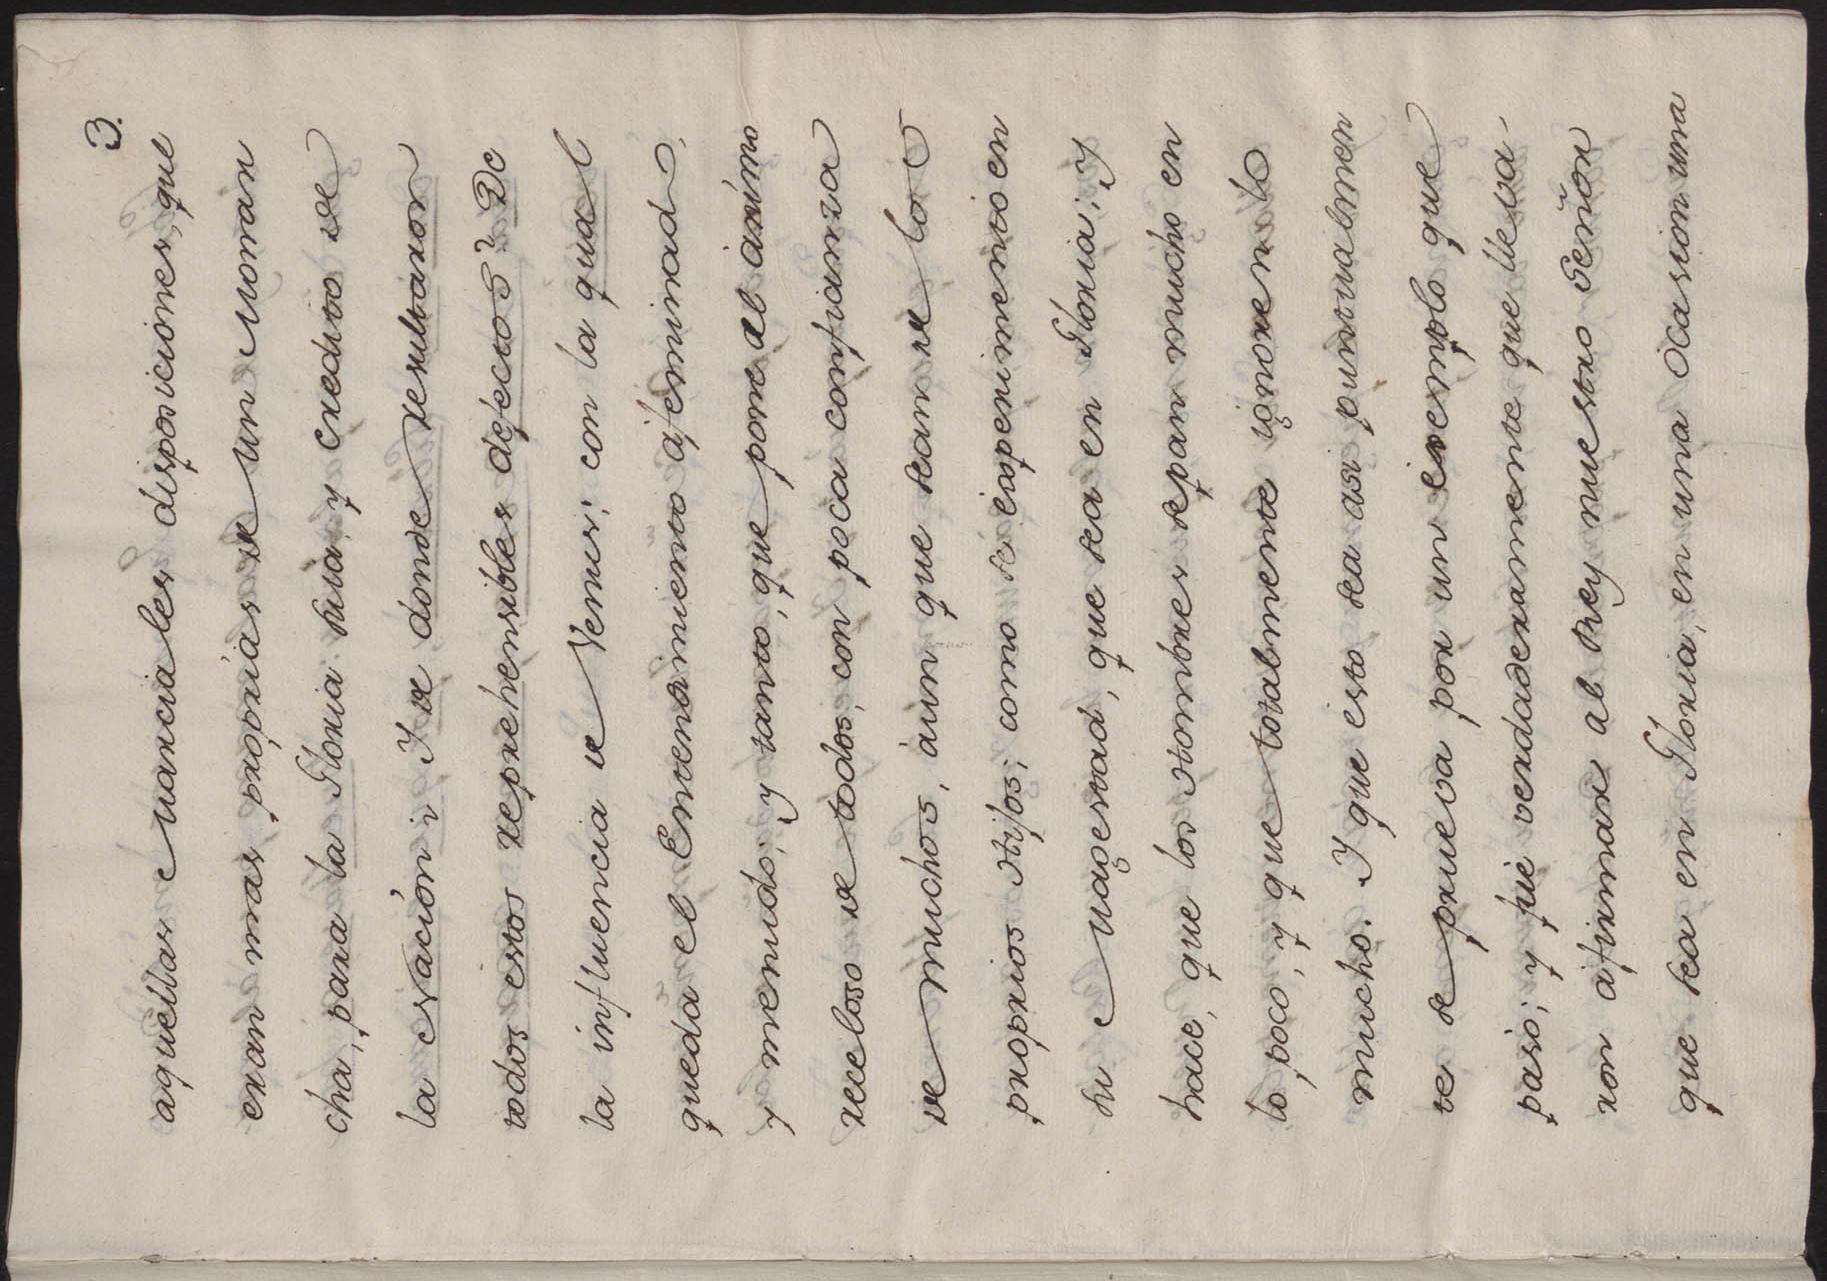 3.
aquellas Marciales disposiciones, que
eran mas proprias de un Monar
cha, para la Gloria suia, y credito de
la Nación; I de donde resultaron
todos estos reprehensibles defectos? De
la influencia de Venus; con la qual
queda el Entendimiento áfeminado,
y menudo; y tanto, que pone al ánimo
receloso de todos, con poca confianza
de muchos, áun que sean de los
proprios Hijos; como se éxperimentó en
su Magestad, que sea en Gloria; y
hace, que los Hombres sepan mucho en
lo poco, y que totalmente ignoren lo
mucho. I que esto sea asi puntualmen
te se prueva por un exemplo que
pasó; y fué verdaderamente que lleva-
ron áfirmare al Rey nuestro Señor
que sea en Gloria, en una ocasion una